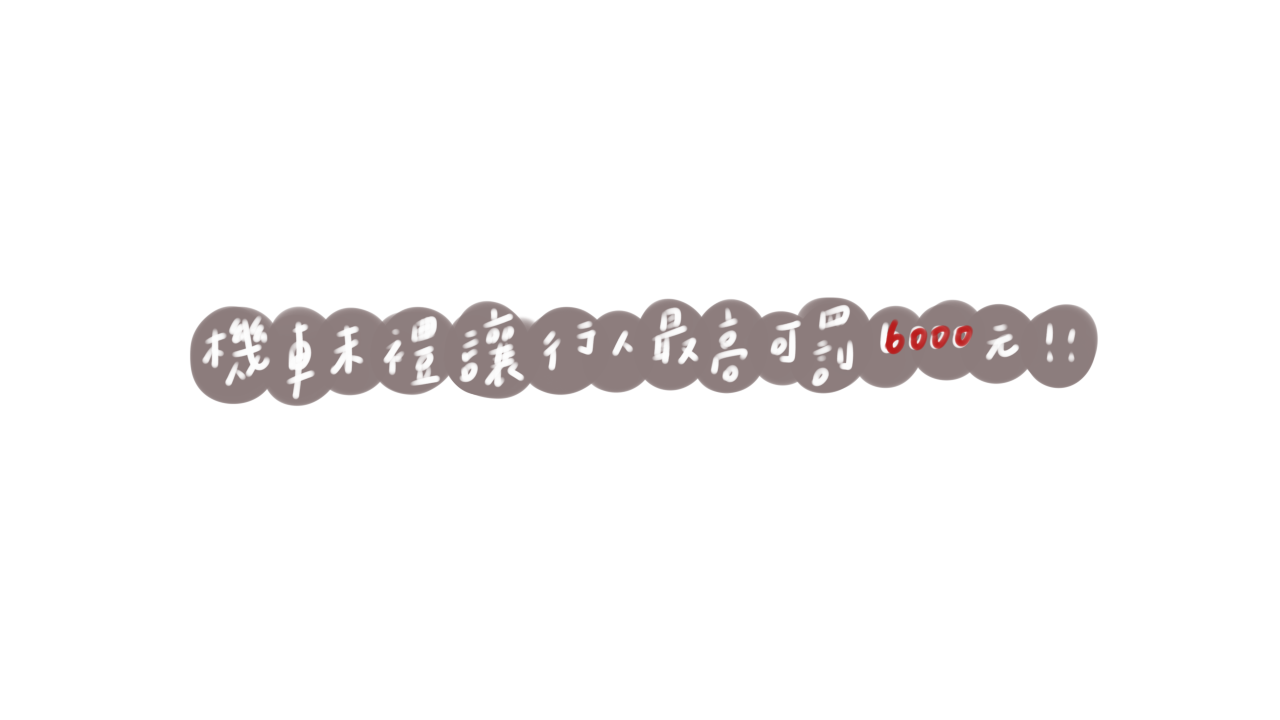 機車未禮讓行人最高可罰6000元!!